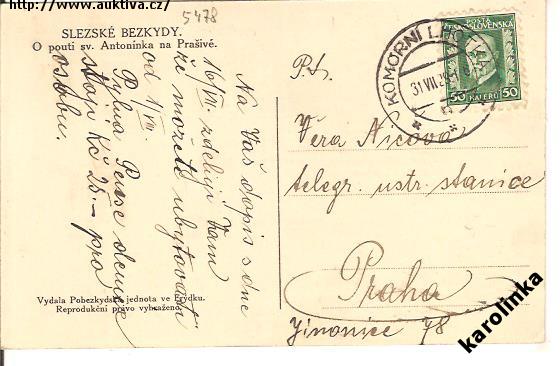 http://www.auktiva.cz/
5478
SLEZSKÉ BEZKYDY.
O pouti sv. Antonínka na Prašivé.
Na Váš dopis s dne
16/VII. zděluji Vám
že možete ubytovati
od 1/VIII.
Pylná Pense denně
stojí Kč 25.– pro
osobu.
Vydala Pobezkydská jednota ve Frýdku.
Reprodukční právo vyhraženo.
KOMORNÍ LHOTKA
31 VII 29
POSTA
ČESKOSLOVENSKÁ
50 HALÉŘŮ 50
P.T.
Věra Nicova
telegr. ustr. stanice
Praha
Jinonice 78
karolinka